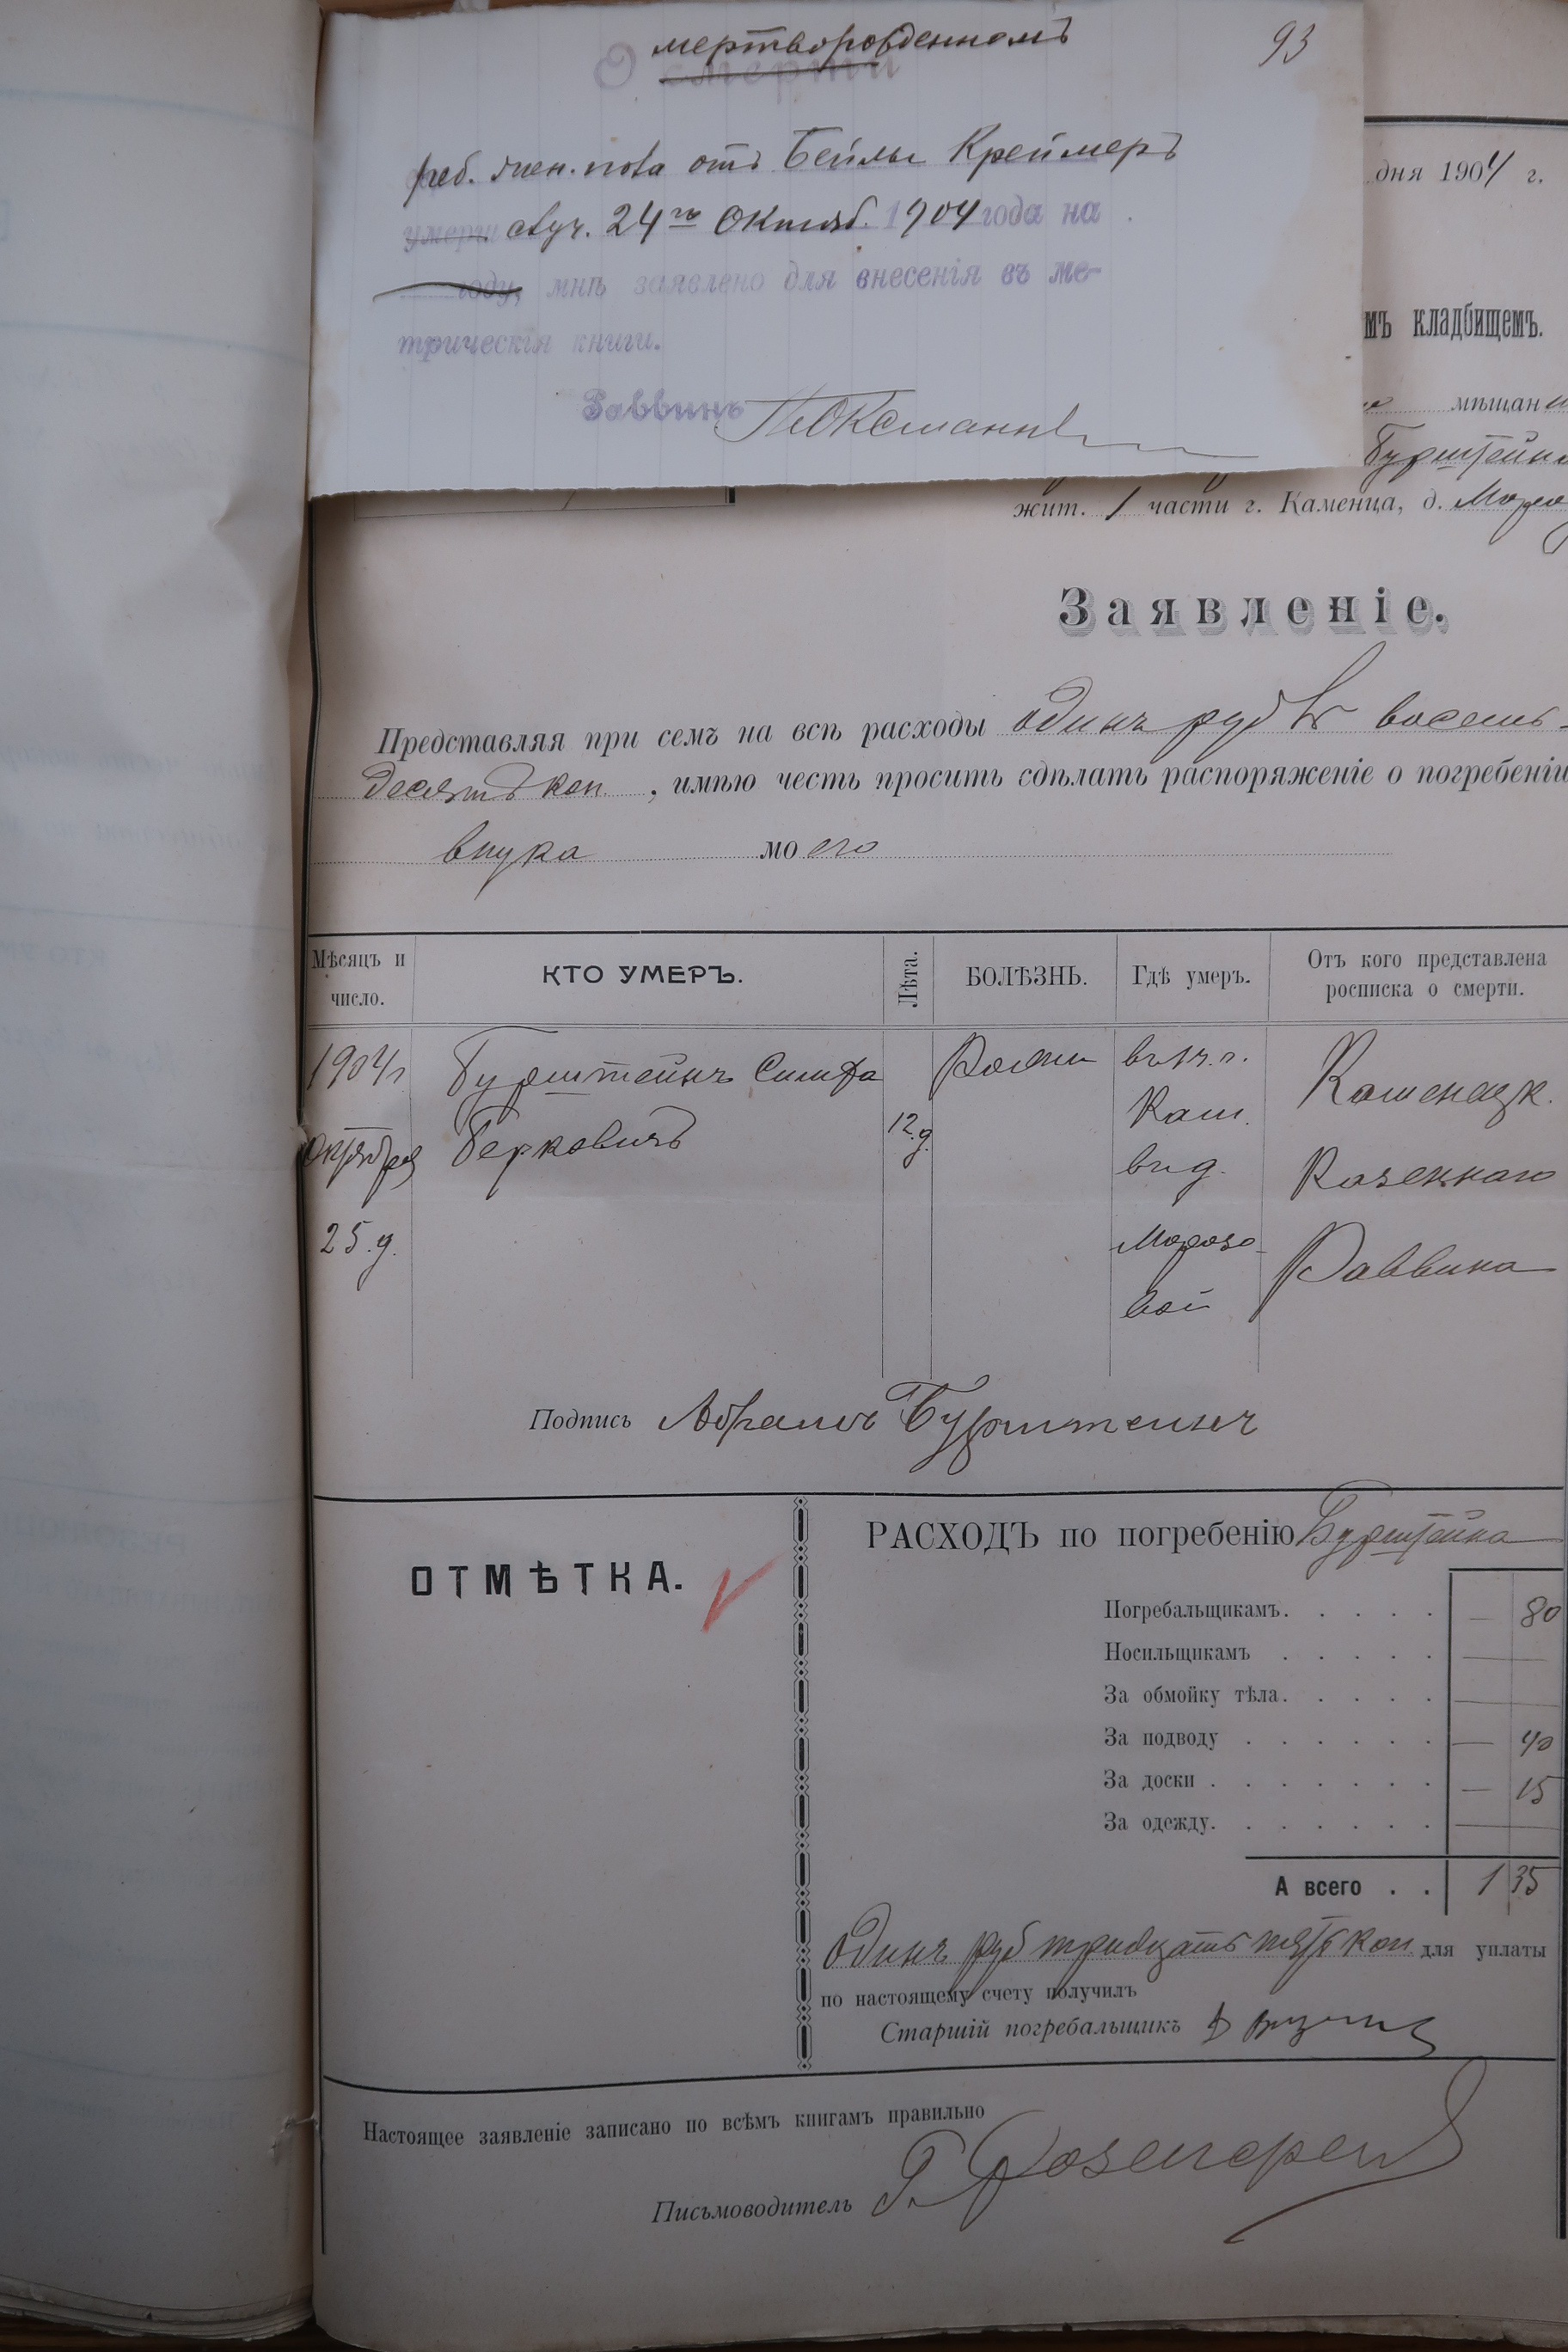 93
мертворожденномъ
О смерти
реб. жен. пола отъ Бейлы Креймеръ
умерш. случ. 24го Октяб. 1904 года на
году, мнѣ заявлено для внесенія въ ме-
трическія книги.
Раввинъ
дня 1904 г.
мъ кладбищемъ.
мѣщани
Бурштейна
жит. 1 части г. Каменца, д. Моро
Заявленіе.
Представляя при семъ на всѣ расходы одинъ руб восемь-
десятъ коп. , имѣю честь просить сдѣлать распоряженіе о погребеніи
внука моего
Мѣсяцъ и число.
КТО УМЕРЪ.
Лѣта.
БОЛѢЗНЬ.
Гдѣ умеръ.
Отъ кого представлена росписка о смерти.
1904 г
Октября
25 д.
Бурштейнъ Симха
Берковичъ
12 д.
въ 1 ч. г.
Кам.
въ д.
Морозо-
вой
Каменецк.
Казеннаго
Раввина
Подпись Абрамъ Бурштейнъ
ОТМѢТКА.
РАСХОДЪ по погребенію Бурштейна
Погребальщикамъ. . . . . — 80
Носильщикамъ . . . . . —
За обмойку тѣла. . . . . —
За подводу . . . . . . — 40
За доски . . . . . . . — 15
За одежду. . . . . . . —
А всего . . 1 35
Одинъ руб тридцать пять коп для уплаты
по настоящему счету получилъ
Старшій погребальщикъ
Настоящее заявленіе записано по всѣмъ книгамъ правильно
Письмоводитель Г. Розенгрен